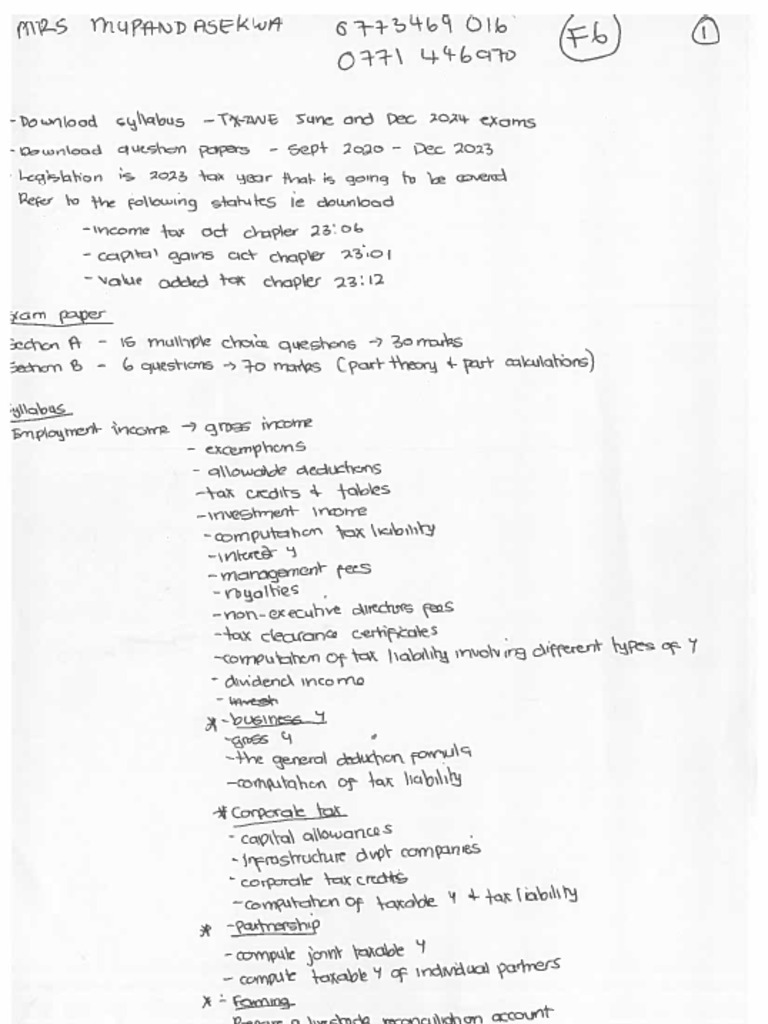 MRS MUPANDASEKWA 0773469 016 F6 1
0771 446970
- Download syllabus - TX-ZWE June and Dec 2024 exams
- Download question papers - Sept 2020 - Dec 2023
- Legislation is 2023 tax year that is going to be covered
Refer to the following statutes ie download
- income tax act chapter 23:06
- capital gains act chapter 23:01
- value added tax chapter 23:12
xam paper
ection A - 15 multiple choice questions → 30 marks
ection B - 6 questions → 70 marks (part theory & part calculations)
yllabus
Employment income → gross income
- excemptions
- allowable deductions
- tax credits & tables
- investment income
- computation tax liability
- interest Y
- management fees
- royalties
- non-executive directors fees
- tax clearance certificates
- computation of tax liability involving different types of Y
- dividend income
- invest
* - business Y
- gross Y
- the general deduction formula
- computation of tax liability
* Corporate tax
- capital allowances
- infrastructure dvpt companies
- corporate tax credits
- computation of taxable Y & tax liability
* - Partnership
- compute joint taxable Y
- compute taxable Y of individual partners
* - Farming
Prepare a livestock reconciliation account